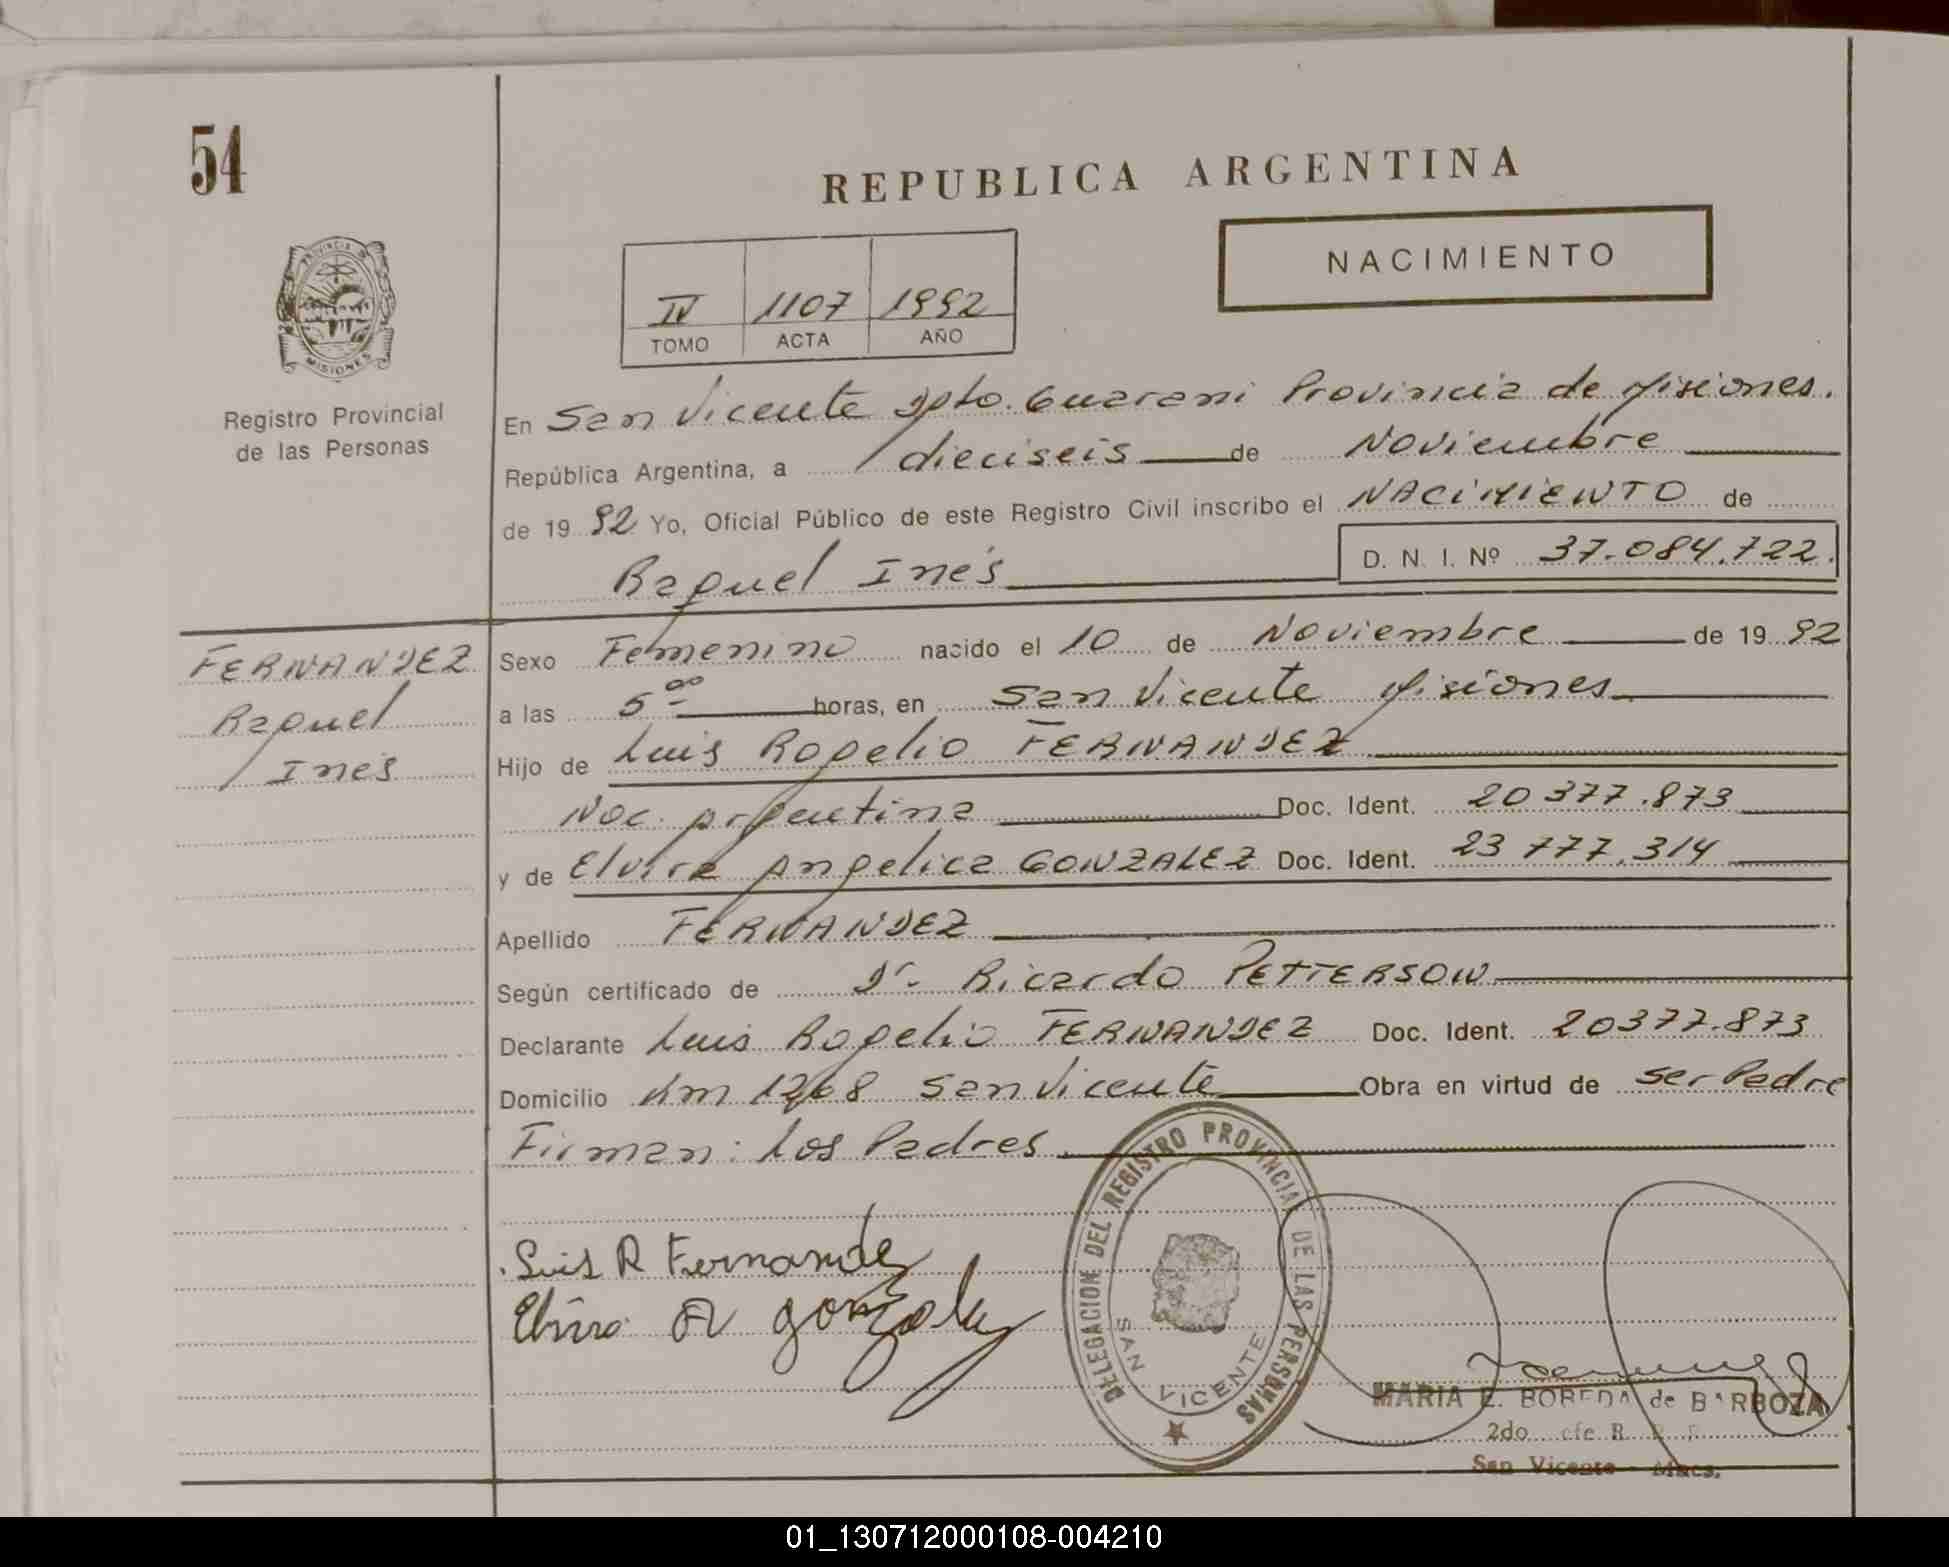 54
REPUBLICA ARGENTINA
NACIMIENTO
IV 1107 1992
TOMO ACTA AÑO
PROVINCIA
MISIONES
Registro Provincial
de las Personas
En San Vicente Dpto. Guarani Provincia de Misiones.
República Argentina, a dieciseis de Noviembre
de 19 92 Yo, Oficial Público de este Registro Civil inscribo el NACIMIENTO de
Raquel Inés D. N. I. Nº 37.084.722.
FERNANDEZ
Raquel
Inés
Sexo Femenino nacido el 10 de Noviembre de 19 92
a las 5 00 horas, en San Vicente Misiones
Hijo de Luis Rogelio FERNANDEZ
Nac. Argentina Doc. Ident. 20 377.873
y de Elvira Angelica GONZALEZ Doc. Ident. 23 777.314
Apellido FERNANDEZ
Según certificado de Dr. Ricardo PETTERSON
Declarante Luis Rogelio FERNANDEZ Doc. Ident. 20377.873
Domicilio Km 1268 San Vicente Obra en virtud de ser Padre
Firman: Los Padres
Luis R Fernandez
Elvira A gonzalez
DELEGACION DEL REGISTRO PROVINCIAL DE LAS PERSONAS
SAN VICENTE
MARIA E. BOBEDA de BARBOZA
2do
San Vicente - Mnes.
01_130712000108-004210